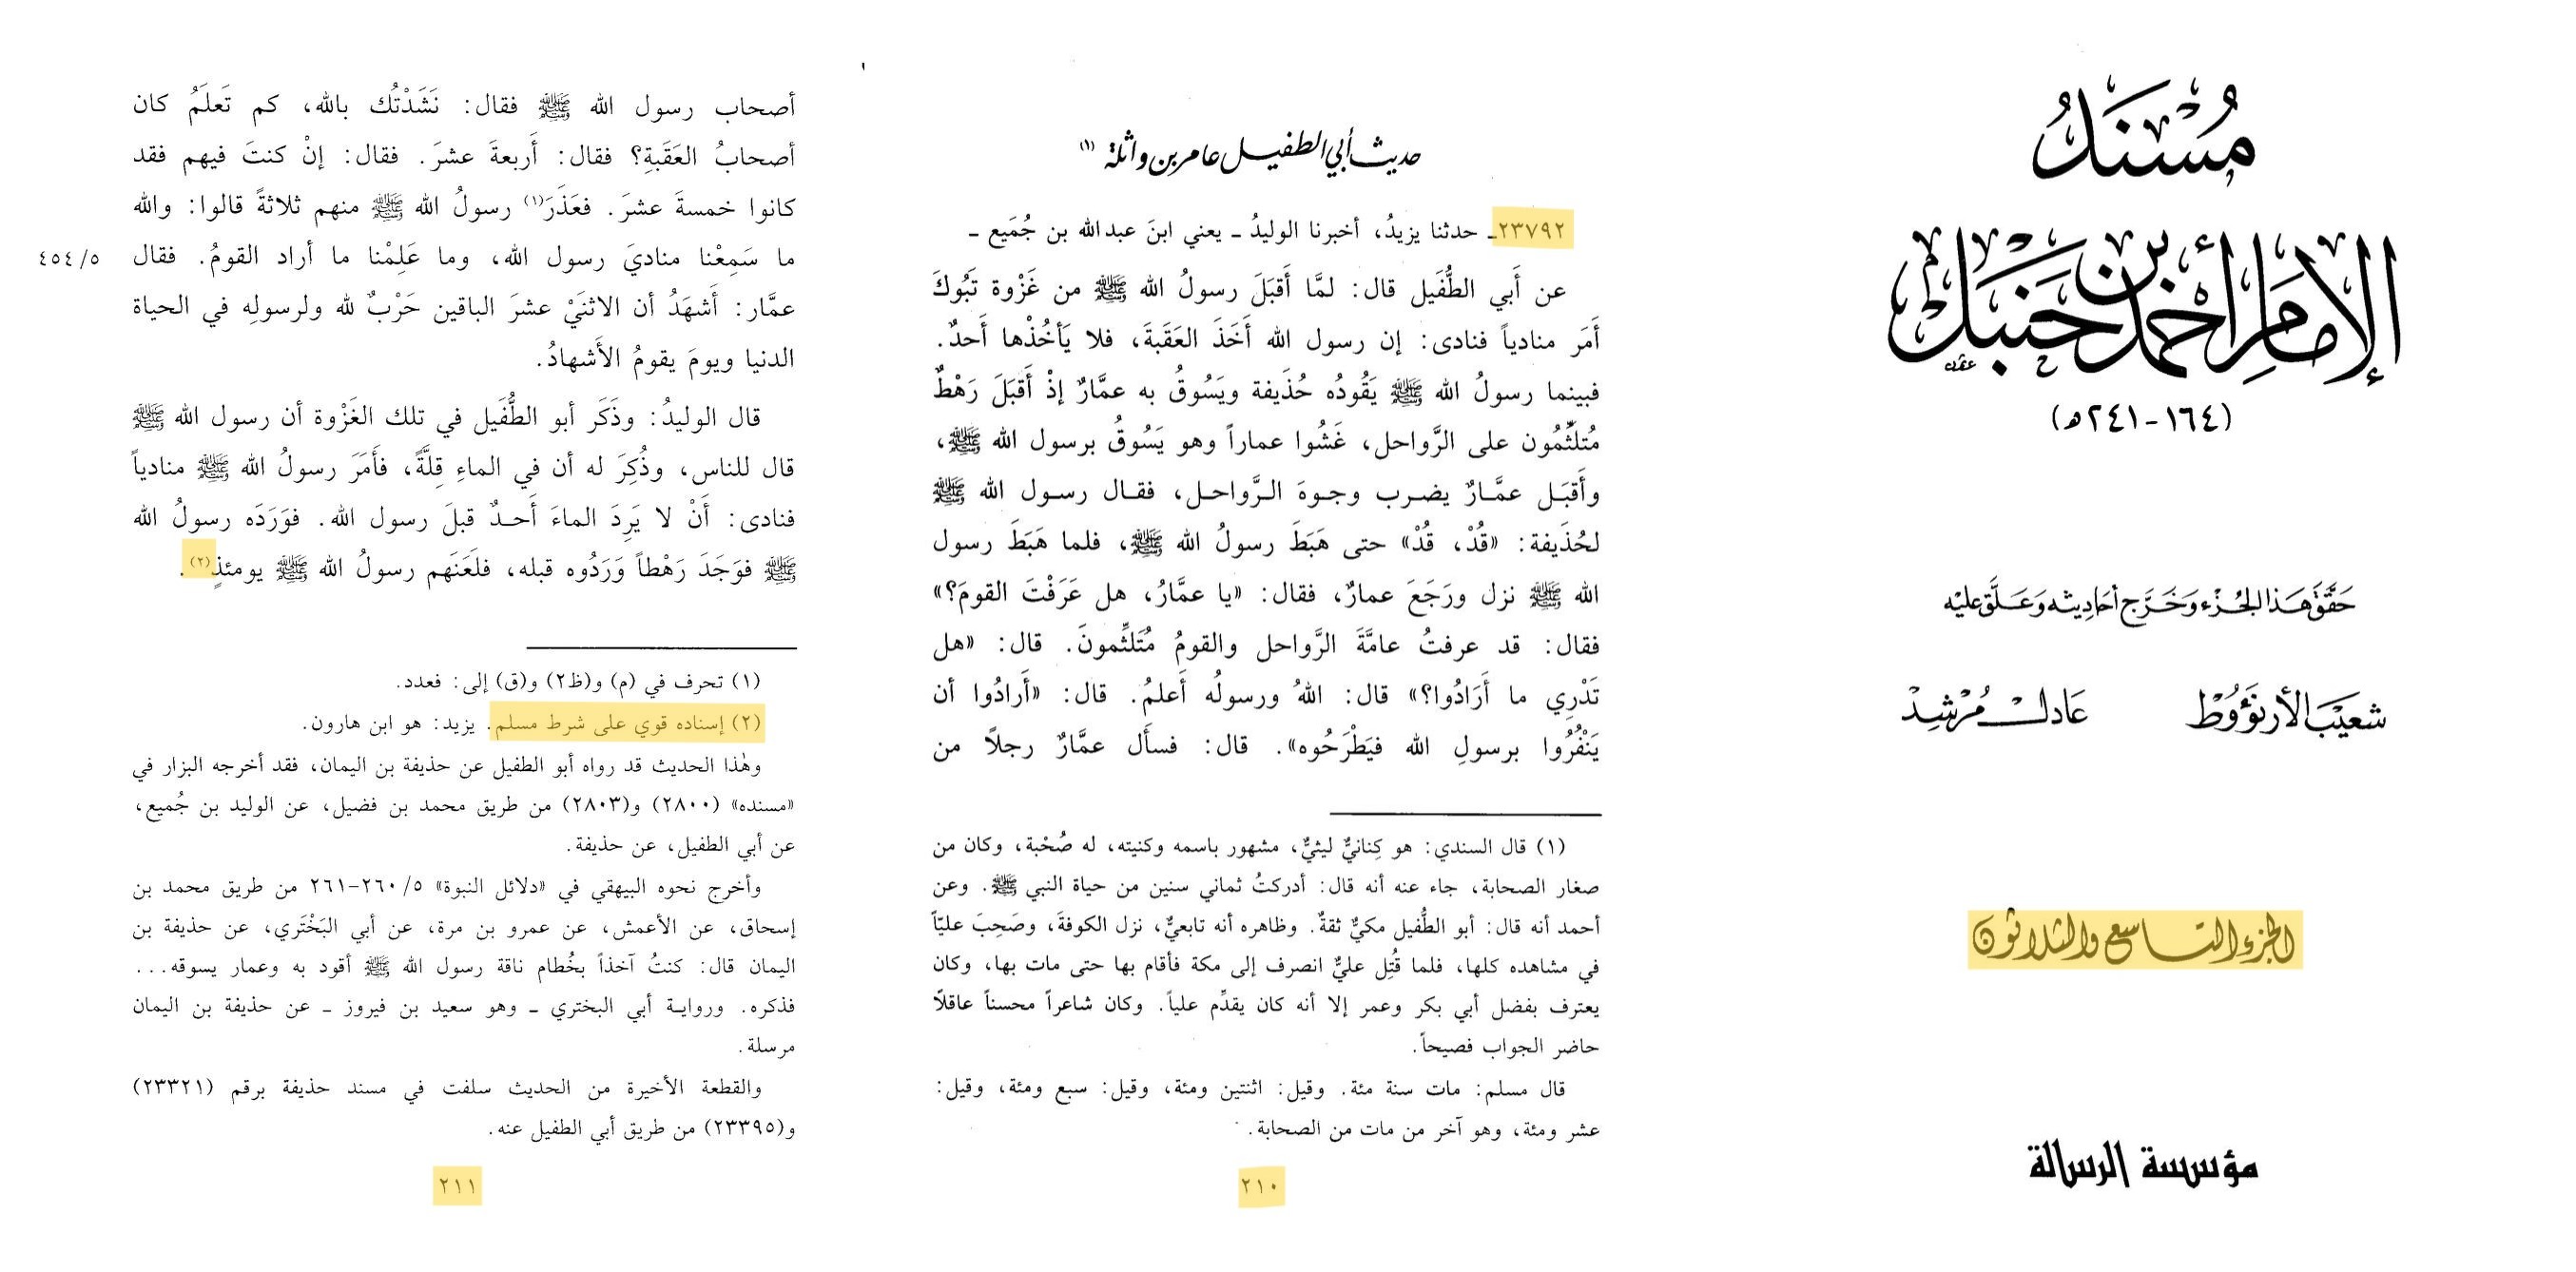 مُسْنَدُ
الإمَامِ أحْمَدَ بْنِ حَنْبَل
(١٦٤-٢٤١ه)
حَقَّقَ هَذَا الجُزْء وَخَرَّج أحَادِيثه وَعَلَّقَ عَليْه
شعَيْبَ الأرنَؤُوط عَادل مُرْشِد
الجزء التاسع والثلاثون
مؤسسة الرسالة
حديث أبي الطفيل عامر بن واثلة (١)
٢٣٧٩٢ـ حدثنا يزيدُ، أخبرنا الوليدُ ـ يعني ابنَ عبد الله بن جُمَيع ـ
عن أَبي الطُّفَيل قال: لمَّا أَقبَلَ رسولُ الله ﷺ من غَزْوة تَبُوكَ
أَمَر منادياً فنادى: إن رسول الله أَخَذَ العَقَبةَ، فلا يَأخُذْها أَحدٌ.
فبينما رسولُ الله ﷺ يَقُودُه حُذَيفة ويَسُوقُ به عمَّارٌ إذْ أَقبَلَ رَهْطٌ
مُتلَثِّمُون على الرَّواحل، غَشُوا عماراً وهو يَسُوقُ برسول الله ﷺ،
وأَقبَل عمَّارٌ يضرب وجوهَ الرَّواحل، فقال رسول الله ﷺ
لحُذَيفة: «قُدْ، قُدْ» حتى هَبَطَ رسولُ الله ﷺ، فلما هَبَطَ رسول
الله ﷺ نزل ورَجَعَ عمارٌ، فقال: «يا عمَّارُ، هل عَرَفْتَ القومَ؟»
فقال: قد عرفتُ عامَّةَ الرَّواحل والقومُ مُتَلثِّمونَ. قال: «هل
تَدْرِي ما أَرَادُوا؟» قال: اللهُ ورسولُه أَعلمُ. قال: «أَرادُوا أن
يَنْفُرُوا برسولِ الله فيَطْرَحُوه». قال: فسأَل عمَّارٌ رجلاً من
(١) قال السندي: هو كِنانيٌّ ليثيٌّ، مشهور باسمه وكنيته، له صُحْبة، وكان من
صغار الصحابة، جاء عنه أنه قال: أدركتُ ثماني سنين من حياة النبي ﷺ. وعن
أحمد أنه قال: أبو الطُّفيل مكيٌّ ثقةٌ. وظاهره أنه تابعيٌّ، نزل الكوفةَ، وصَحِبَ عليّاً
في مشاهده كلها، فلما قُتِل عليٌّ انصرف إلى مكة فأقام بها حتى مات بها، وكان
يعترف بفضل أبي بكر وعمر إلا أنه كان يقدِّم علياً. وكان شاعراً محسناً عاقلاً
حاضر الجواب فصيحاً.
قال مسلم: مات سنة مئة. وقيل: اثنتين ومئة، وقيل: سبع ومئة، وقيل:
عشر ومئة، وهو آخر من مات من الصحابة.
٢١٠
أصحاب رسول الله ﷺ فقال: نَشَدْتُك بالله، كم تَعلَمُ كان
أصحابُ العَقَبةِ؟ فقال: أَربعةَ عشرَ. فقال: إنْ كنتَ فيهم فقد
كانوا خمسةَ عشرَ. فعَذَرَ(١) رسولُ الله ﷺ منهم ثلاثةً قالوا: والله
ما سَمِعْنا مناديَ رسول الله، وما عَلِمْنا ما أراد القومُ. فقال
٤٥٤/٥
عمَّار: أَشهَدُ أن الاثنَيْ عشرَ الباقين حَرْبٌ لله ولرسولِه في الحياة
الدنيا ويومَ يقومُ الأَشهادُ.
قال الوليدُ: وذَكَر أبو الطُّفَيل في تلك الغَزْوة أن رسول الله ﷺ
قال للناس، وذُكِرَ له أن في الماءِ قِلَّةً، فأَمَرَ رسولُ الله ﷺ منادياً
فنادى: أَنْ لا يَرِدَ الماءَ أَحدٌ قبلَ رسول الله. فوَرَدَه رسولُ الله
ﷺ فوَجَدَ رَهْطاً وَرَدُوه قبله، فلَعَنَهم رسولُ الله ﷺ يومئذٍ(٢).
(١) تحرف في (م) و(ظ٢) و(ق) إلى: فعدد.
(٢) إسناده قوي على شرط مسلم. يزيد: هو ابن هارون.
وهٰذا الحديث قد رواه أبو الطفيل عن حذيفة بن اليمان، فقد أخرجه البزار في
«مسنده» (٢٨٠٠) و(٢٨٠٣) من طريق محمد بن فضيل، عن الوليد بن جُميع،
عن أبي الطفيل، عن حذيفة.
وأخرج نحوه البيهقي في «دلائل النبوة» ٢٦٠/٥-٢٦١ من طريق محمد بن
إسحاق، عن الأعمش، عن عمرو بن مرة، عن أبي البَخْتَري، عن حذيفة بن
اليمان قال: كنتُ آخذاً بخُطام ناقة رسول الله ﷺ أقود به وعمار يسوقه...
فذكره. ورواية أبي البختري ـ وهو سعيد بن فيروز ـ عن حذيفة بن اليمان
مرسلة.
والقطعة الأخيرة من الحديث سلفت في مسند حذيفة برقم (٢٣٣٢١)
و(٢٣٣٩٥) من طريق أبي الطفيل عنه.
٢١١